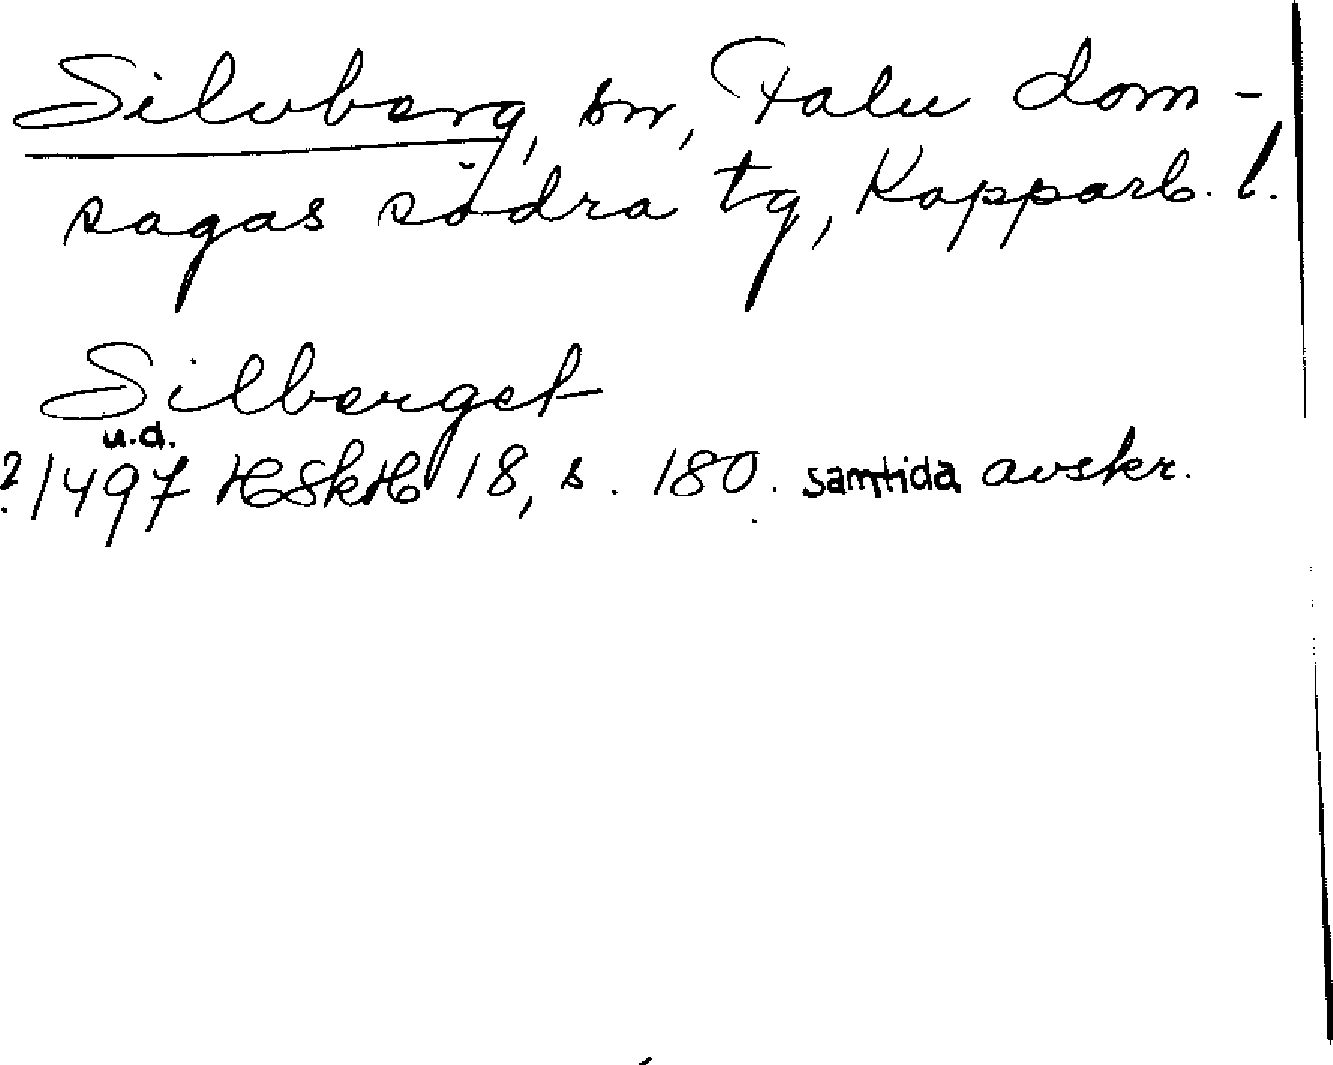 Silvberg, sn, Falu dom-
sagas södra tg, Kopparb. l.
Silberget
u.d.
1497 HSkH 18, s. 180. samtida avskr.